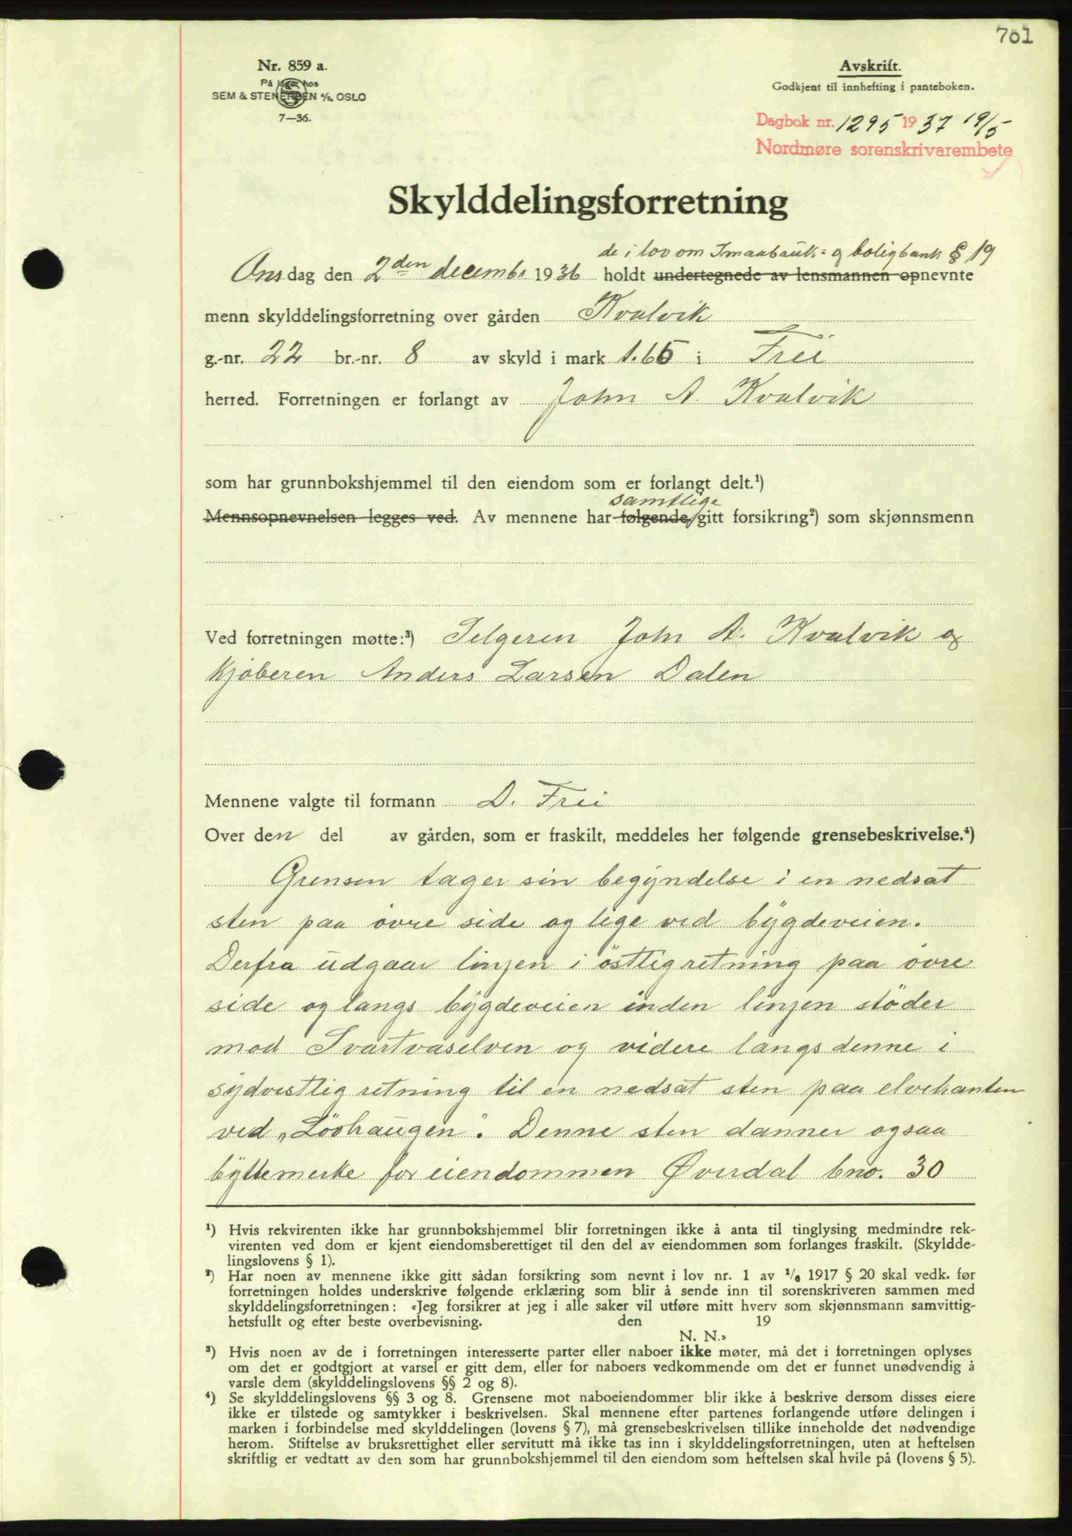 701
Nr. 859 a.
På lager hos
SEM & STENERSEN A/S, OSLO
7—36.
Avskrift.
Godkjent til innhefting i panteboken.
Dagbok nr. 1295 1937 19/5
Nordmøre sorenskrivarembete
Skylddelingsforretning
de i lov om Smaabruk- og boligbank § 19
Onsdag den 2den decembr 1936 holdt undertegnede av lensmannen opnevnte
menn skylddelingsforretning over gården Kvalvik
g.-nr. 22 br.-nr. 8 av skyld i mark 1.65 i Frei
herred. Forretningen er forlangt av John A. Kvalvik
som har grunnbokshjemmel til den eiendom som er forlangt delt.¹)
samtlige
Mennsopnevnelsen legges ved. Av mennene har følgende gitt forsikring²) som skjønnsmenn
Ved forretningen møtte:³) Selgeren John A. Kvalvik og
kjøberen Anders Larsen Dalen
Mennene valgte til formann D. Frei
Over den del av gården, som er fraskilt, meddeles her følgende grensebeskrivelse.⁴)
Grensen tager sin begyndelse i en nedsat
sten paa övre side og lige ved bygdeveien.
Derfra udgaar linjen i östlig retning paa övre
side og langs bygdeveien inden linjen stöder
mod Svartvaselven og videre langs denne i
sydvestlig retning til en nedsat sten paa elvekanten
ved „Löohaugen". Denne sten danner ogsaa
byttemerke for eiendommen Øverdal bno. 30
¹) Hvis rekvirenten ikke har grunnbokshjemmel blir forretningen ikke å anta til tinglysing medmindre rek-
virenten ved dom er kjent eiendomsberettiget til den del av eiendommen som forlanges fraskilt. (Skyldde-
lingslovens § 1).
²) Har noen av mennene ikke gitt sådan forsikring som nevnt i lov nr. 1 av 1/6 1917 § 20 skal vedk. før
forretningen holdes underskrive følgende erklæring som blir å sende inn til sorenskriveren sammen med
skylddelingsforretningen: «Jeg forsikrer at jeg i alle saker vil utføre mitt hverv som skjønnsmann samvittig-
hetsfullt og efter beste overbevisning. den 19
N. N.»
³) Hvis noen av de i forretningen interesserte parter eller naboer ikke møter, må det i forretningen oplyses
om det er godtgjort at varsel er gitt dem, eller for naboers vedkommende om det er funnet unødvendig å
varsle dem (skylddelingslovens §§ 2 og 8).
⁴) Se skylddelingslovens §§ 3 og 8. Grensene mot naboeiendommer blir ikke å beskrive dersom disses eiere
ikke er tilstede og samtykker i beskrivelsen. Skal mennene efter partenes forlangende utføre delingen i
marken i forbindelse med skylddelingen (lovens § 7), må grensebeskrivelsen tillike inneholde det nødvendige
herom. Stiftelse av bruksrettighet eller servitutt må ikke tas inn i skylddelingsforretningen, uten at heftelsen
skriftlig er vedtatt av den som har grunnbokshjemmel til den eiendom som heftelsen skal hvile på (lovens § 5).